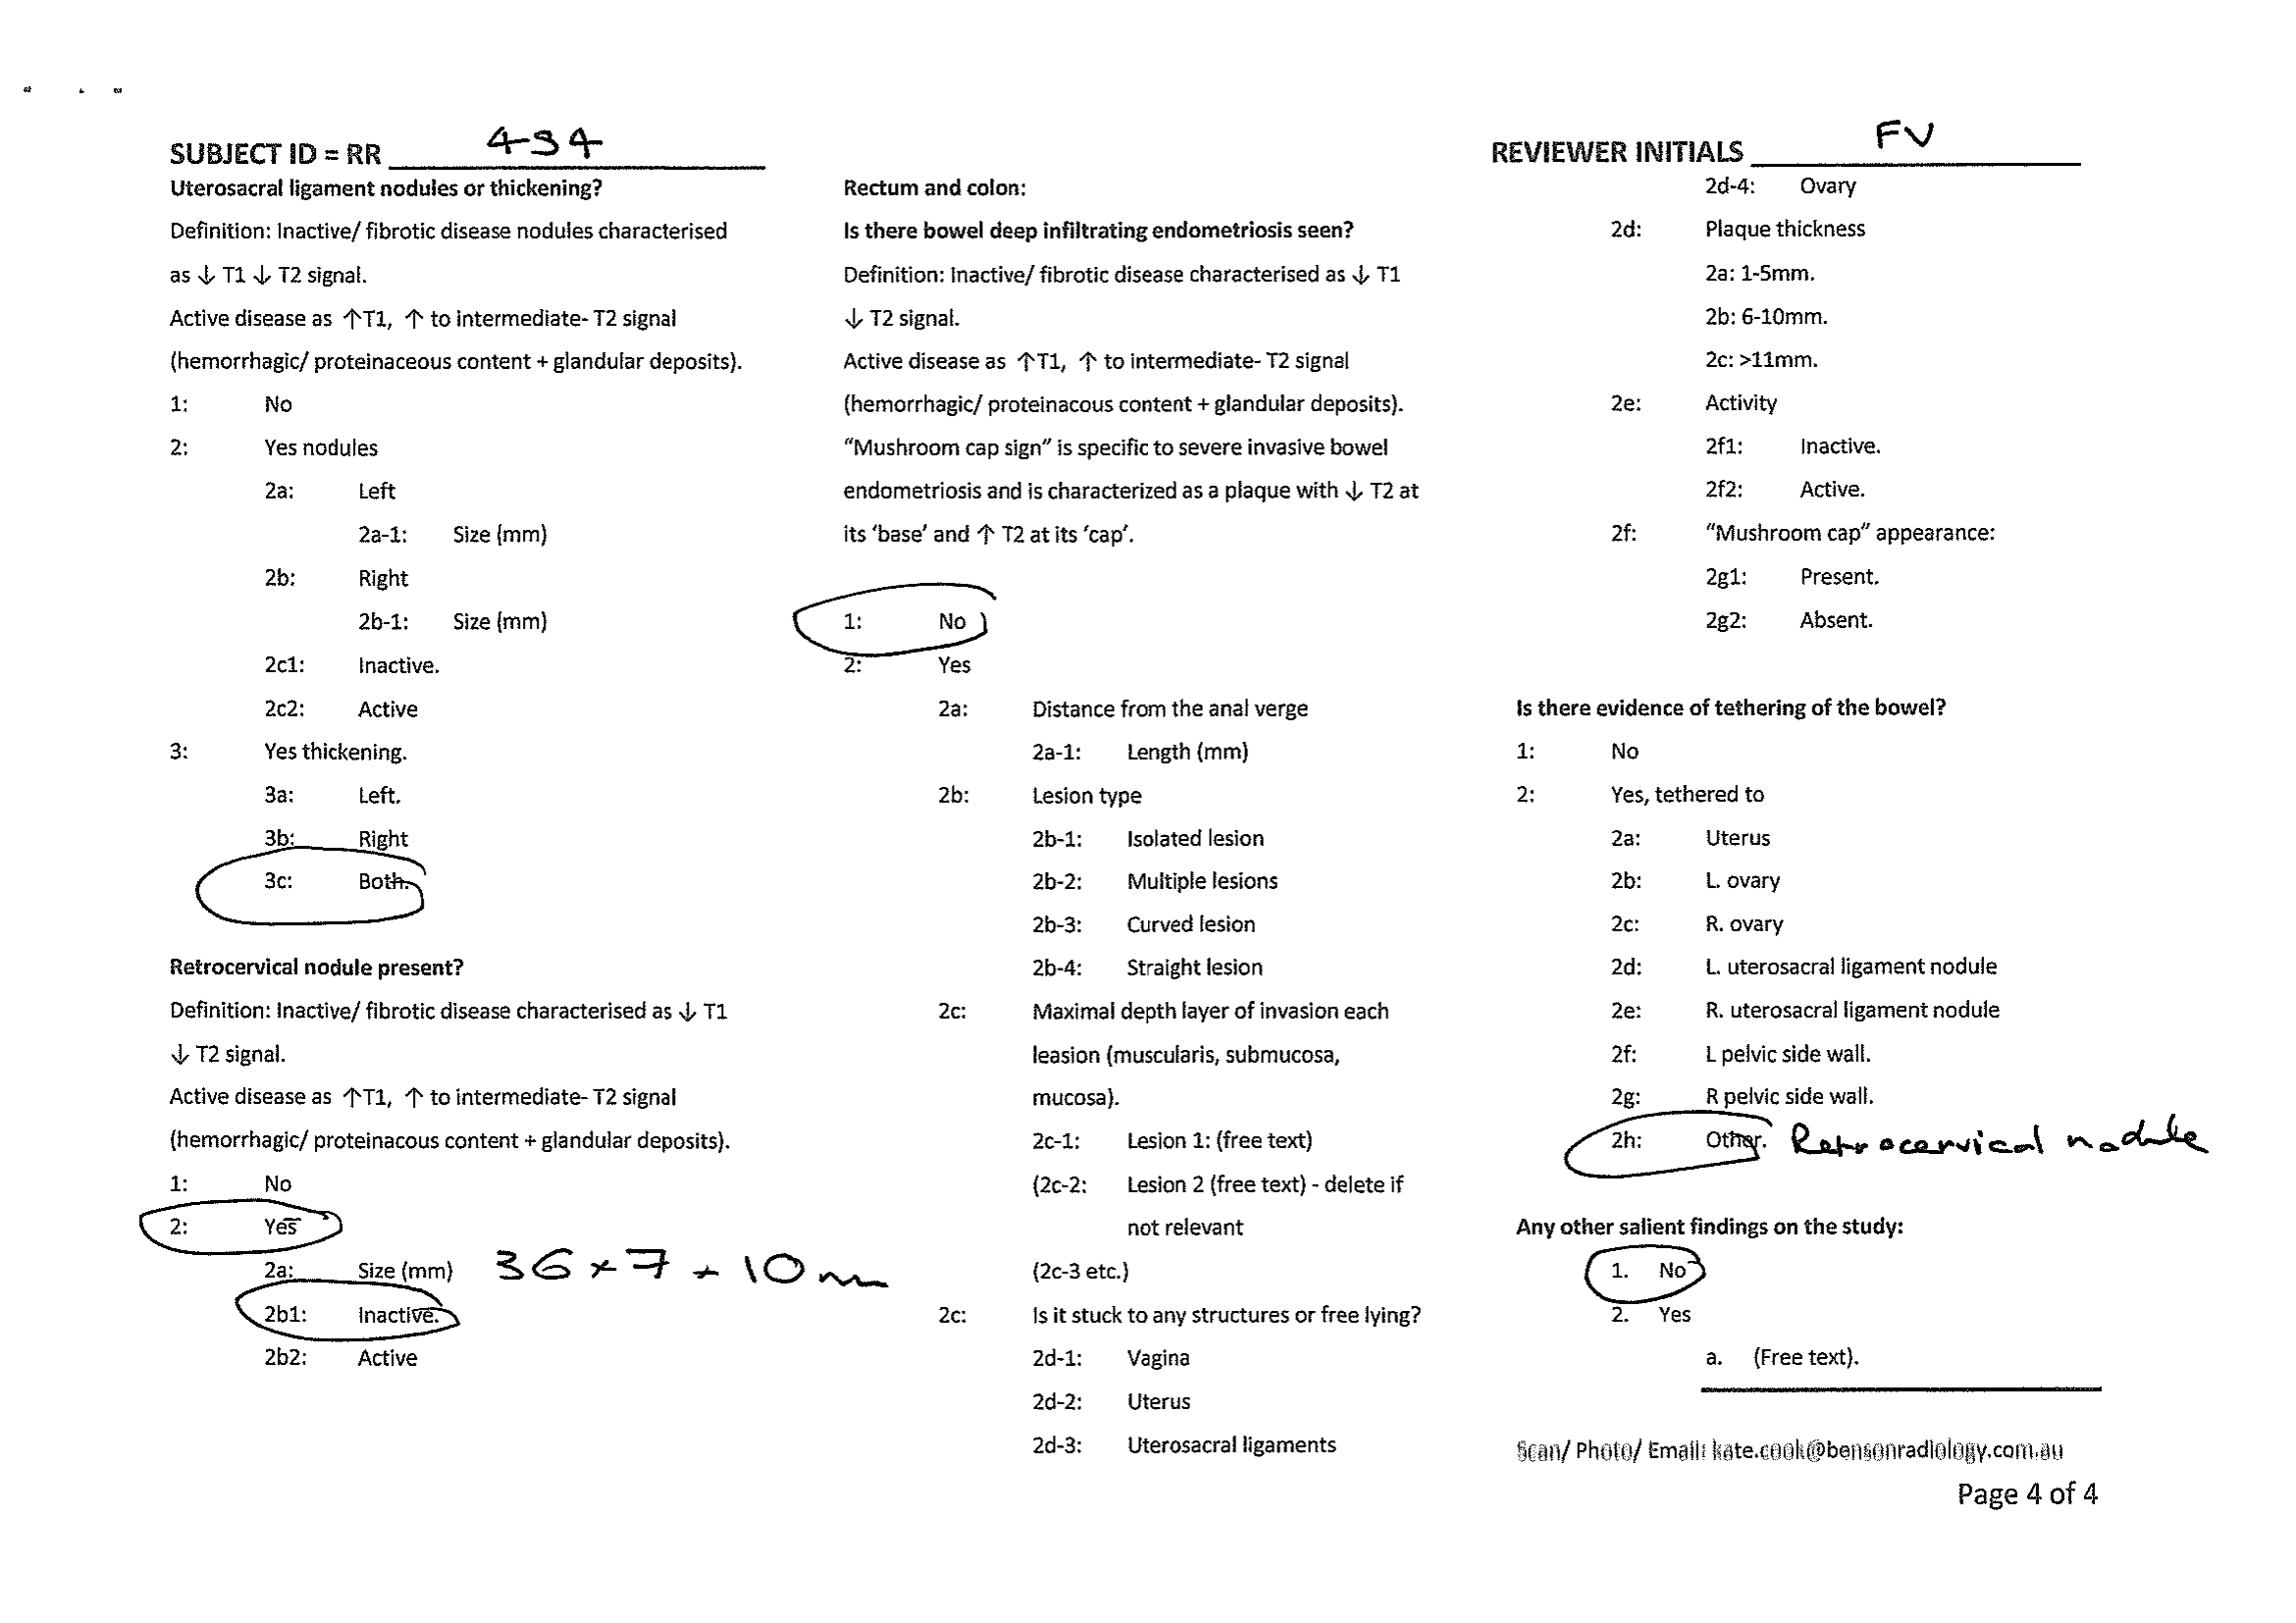 SUBJECT ID = RR 434
Uterosacral ligament nodules or thickening?
Definition: Inactive/ fibrotic disease nodules characterised
as ↓ T1 ↓ T2 signal.
Active disease as ↑T1, ↑ to intermediate- T2 signal
(hemorrhagic/ proteinaceous content + glandular deposits).
1: No
2: Yes nodules
2a: Left
2a-1: Size (mm)
2b: Right
2b-1: Size (mm)
2c1: Inactive.
2c2: Active
3: Yes thickening.
3a: Left.
3b: Right
3c: Both.
Retrocervical nodule present?
Definition: Inactive/ fibrotic disease characterised as ↓ T1
↓ T2 signal.
Active disease as ↑T1, ↑ to intermediate- T2 signal
(hemorrhagic/ proteinacous content + glandular deposits).
1: No
2: Yes
2a: Size (mm) 36 x 7 x 10 mm
2b1: Inactive.
2b2: Active
Rectum and colon:
Is there bowel deep infiltrating endometriosis seen?
Definition: Inactive/ fibrotic disease characterised as ↓ T1
↓ T2 signal.
Active disease as ↑T1, ↑ to intermediate- T2 signal
(hemorrhagic/ proteinacous content + glandular deposits).
“Mushroom cap sign” is specific to severe invasive bowel
endometriosis and is characterized as a plaque with ↓ T2 at
its ‘base’ and ↑ T2 at its ‘cap’.
1: No
2: Yes
2a: Distance from the anal verge
2a-1: Length (mm)
2b: Lesion type
2b-1: Isolated lesion
2b-2: Multiple lesions
2b-3: Curved lesion
2b-4: Straight lesion
2c: Maximal depth layer of invasion each
leasion (muscularis, submucosa,
mucosa).
2c-1: Lesion 1: (free text)
(2c-2: Lesion 2 (free text) - delete if
not relevant
(2c-3 etc.)
2c: Is it stuck to any structures or free lying?
2d-1: Vagina
2d-2: Uterus
2d-3: Uterosacral ligaments
REVIEWER INITIALS FV
2d-4: Ovary
2d: Plaque thickness
2a: 1-5mm.
2b: 6-10mm.
2c: >11mm.
2e: Activity
2f1: Inactive.
2f2: Active.
2f: “Mushroom cap” appearance:
2g1: Present.
2g2: Absent.
Is there evidence of tethering of the bowel?
1: No
2: Yes, tethered to
2a: Uterus
2b: L. ovary
2c: R. ovary
2d: L. uterosacral ligament nodule
2e: R. uterosacral ligament nodule
2f: L pelvic side wall.
2g: R pelvic side wall.
2h: Other. Retrocervical nodule
Any other salient findings on the study:
1. No
2. Yes
a. (Free text).
Scan/ Photo/ Email: kate.cook@bensonradiology.com.au
Page 4 of 4